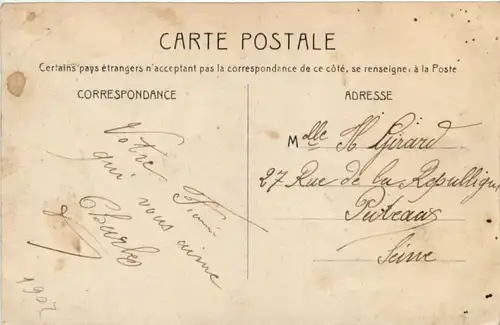 CARTE POSTALE
Certains pays étrangers n'acceptant pas la correspondance de ce côté, se renseigner à la Poste
CORRESPONDANCE
ADRESSE
Votre
qui vous aime
Charles
1907
Mlle H Girard
27 Rue de la République
Puteaux
Seine